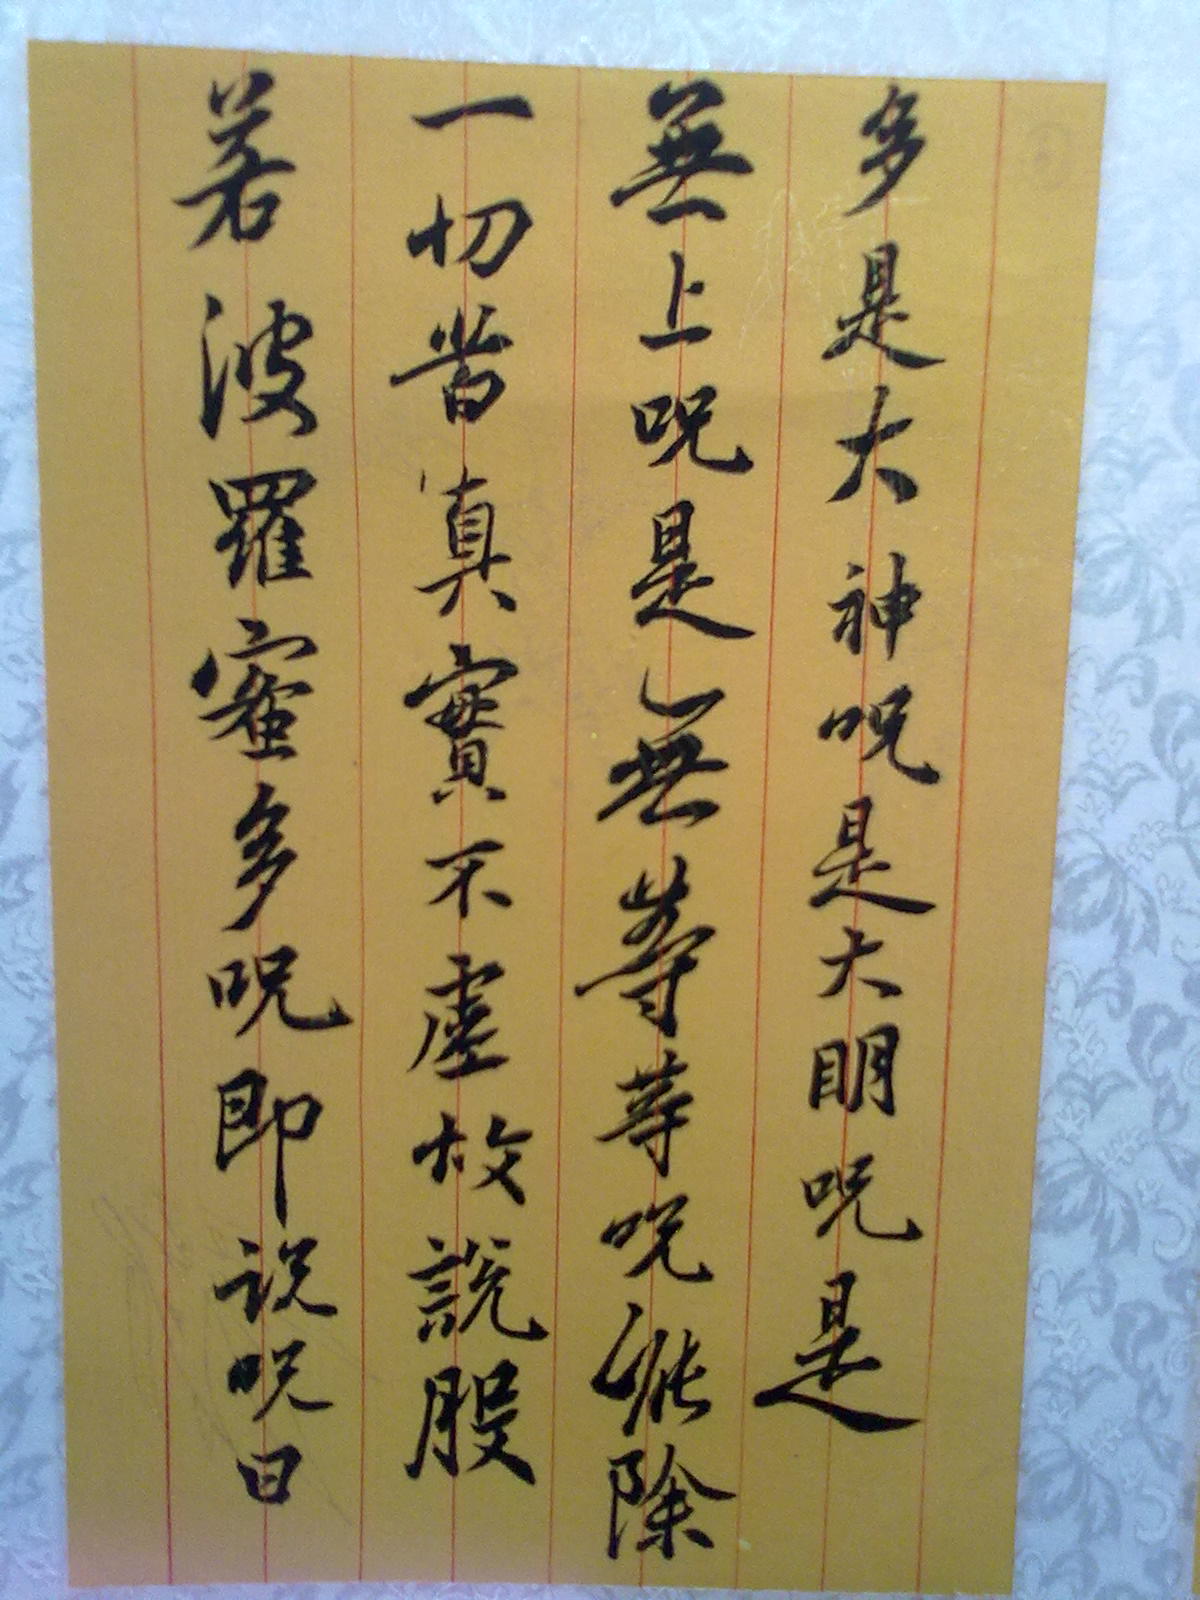 多是大神呪是大明呪是
無上呪是無等等呪能除
一切苦真實不虛故說般
若波羅蜜多呪即説呪曰